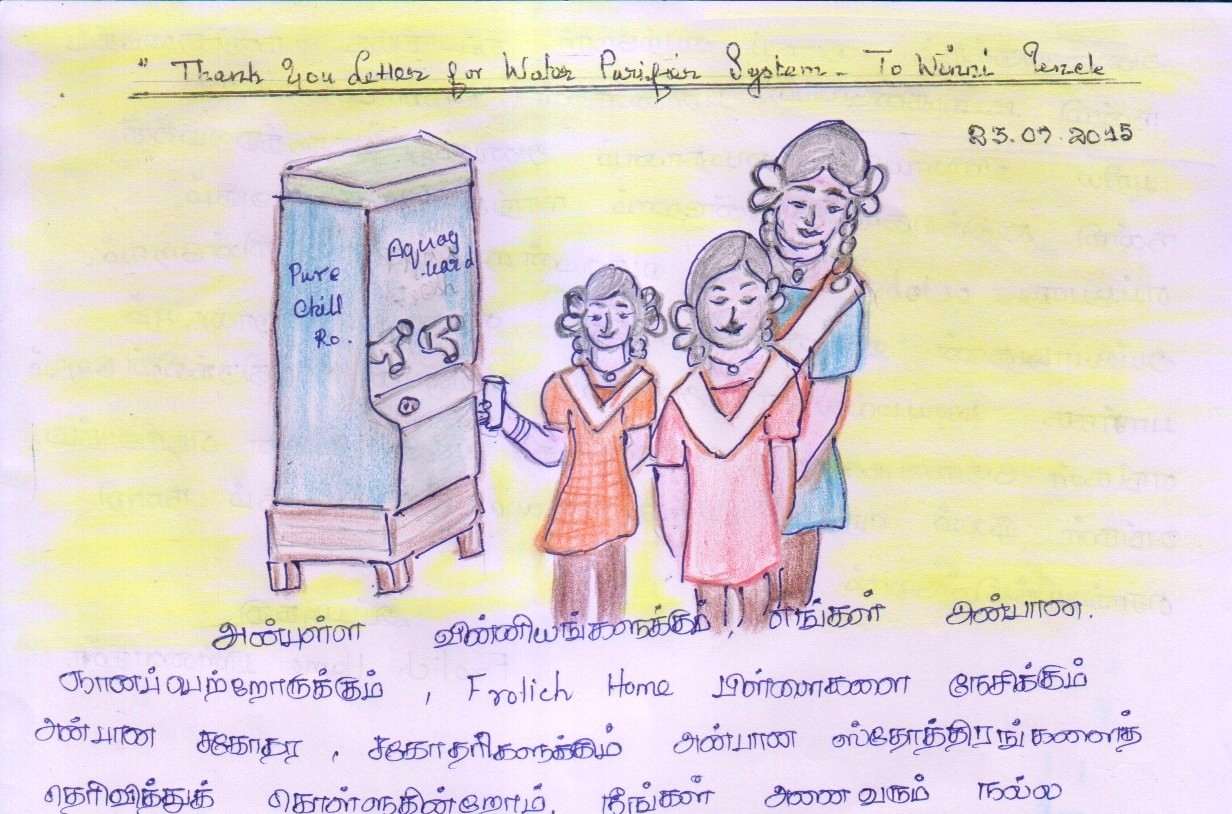 " Thank You Letter for Water Purifier System - To Winni Uncle
23.07.2015
Pure Chill Ro.
Aquag uard
அன்புள்ள வின்னியங்களுக்கும், எங்கள் அன்பான.
ஞானப்பெற்றோருக்கும், Frolich Home பிள்ளைகளை நேசிக்கும்
அன்பான சகோதர, சகோதரிகளுக்கும் அன்பான ஸ்தோத்திரங்களைத்
தெரிவித்துக் கொள்ளுகின்றோம். நீங்கள் அனைவரும் நல்ல